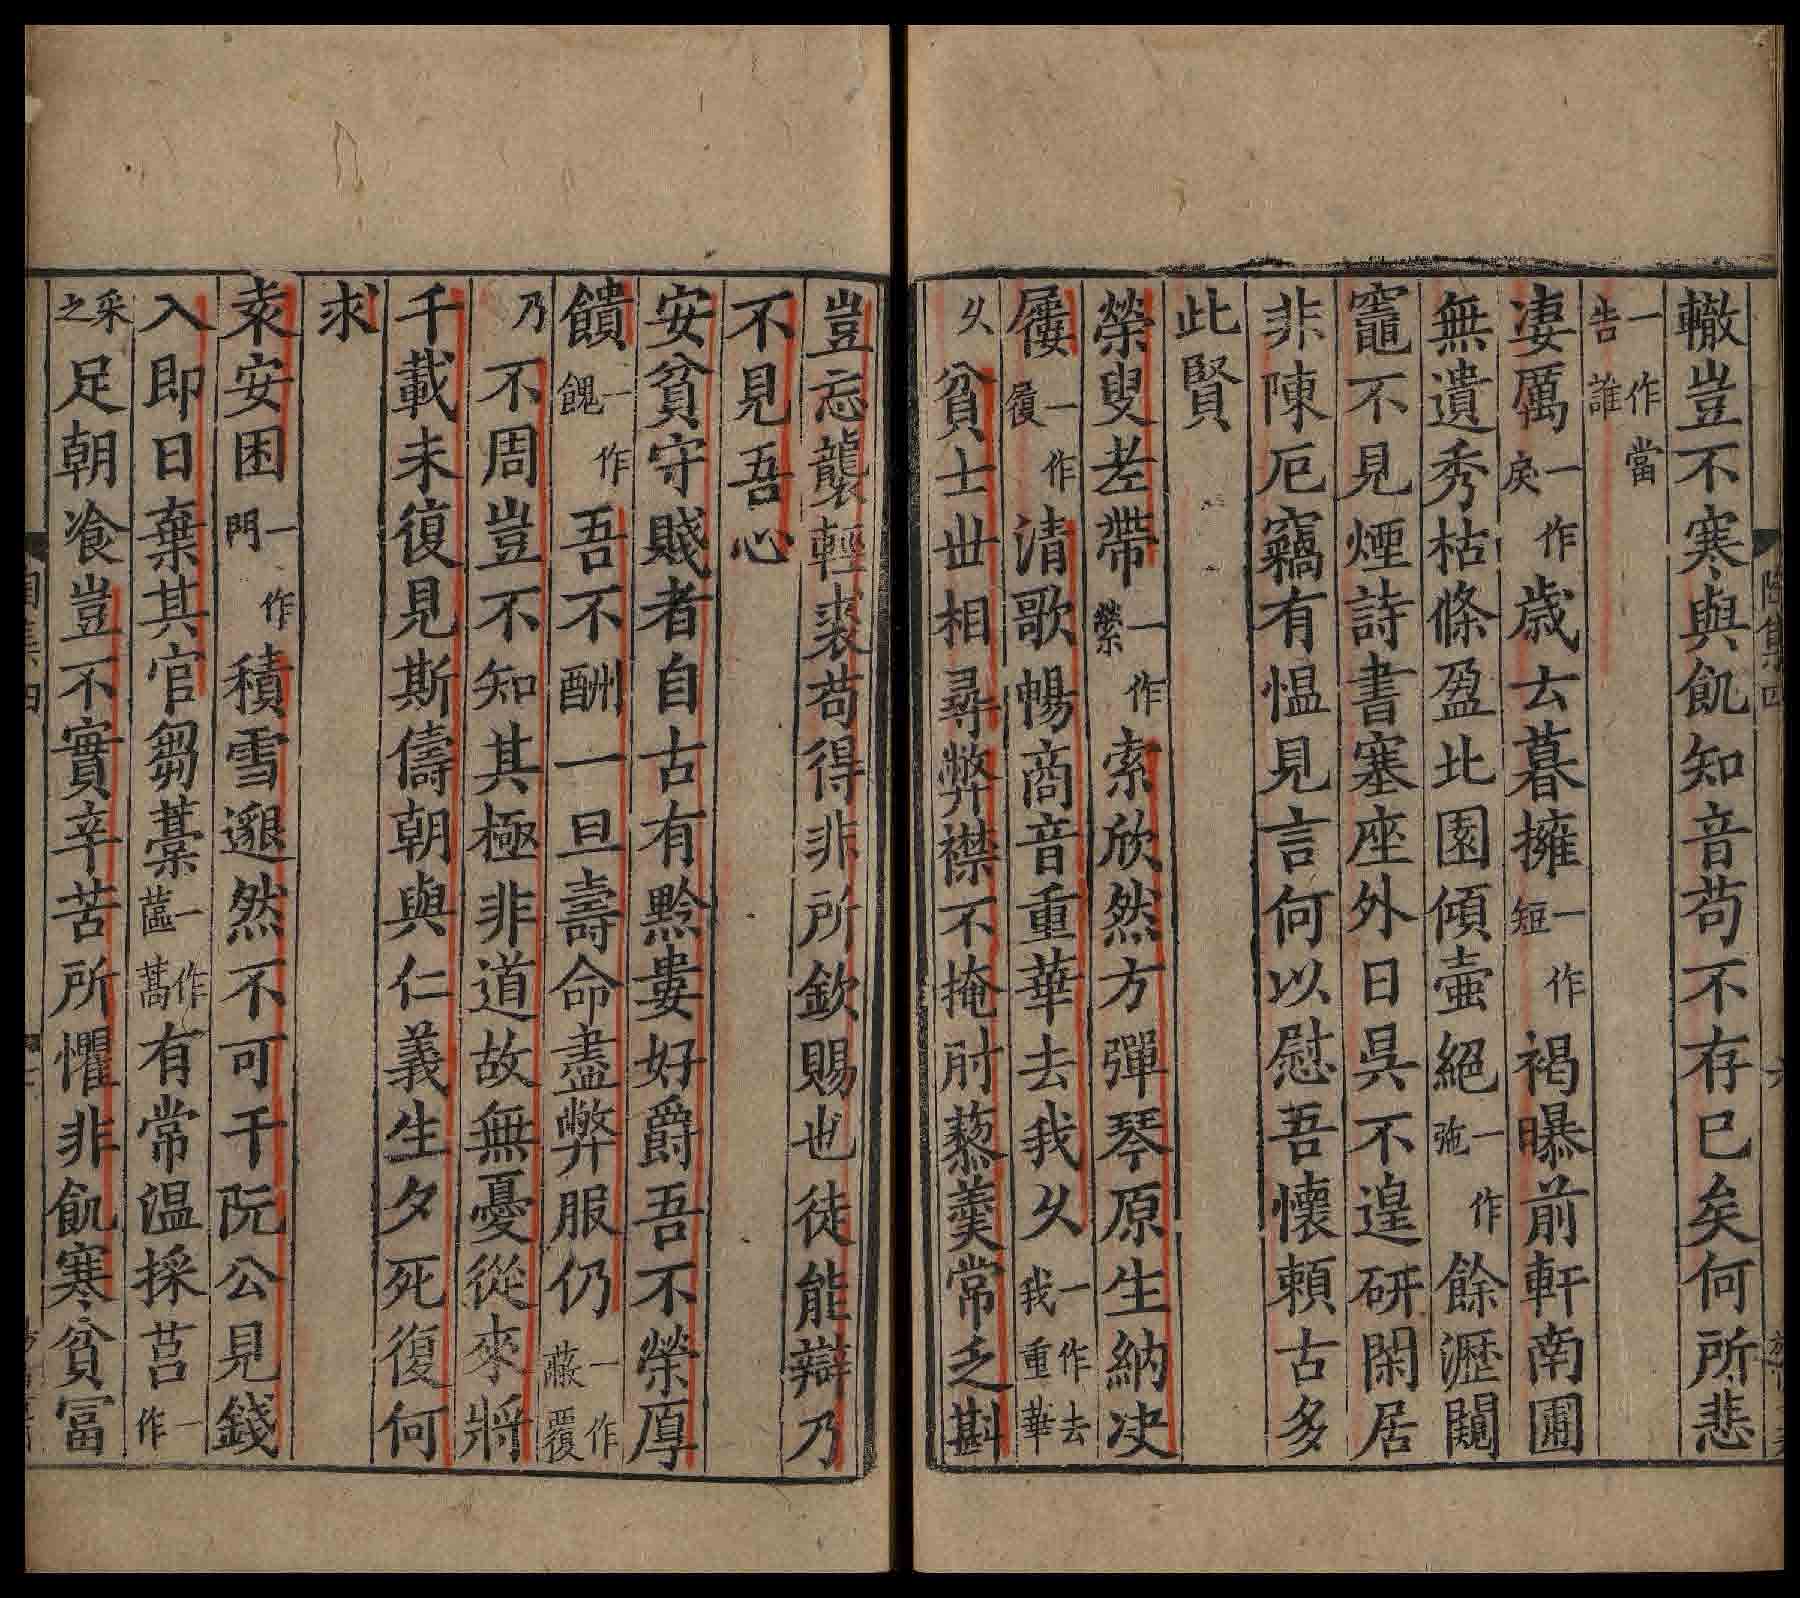 轍豈不寒與飢知音苟不存已矣何所悲
一作當告誰
凄厲一作戾歲去暮擁一作短褐曝前軒南圃
無遺秀枯條盈北園傾壺絕一作弛餘瀝闚
竈不見煙詩書塞座外日昃不遑研閑居
非陳厄竊有愠見言何以慰吾懷賴古多
此賢
榮叟老帶一作縈作索欣然方彈琴原生納决
屨一作履清歌暢商音重華去我久一作去我重華
久貧士世相尋弊襟不掩肘藜羹常乏斟
豈忘襲輕裘苟得非所欽賜也徒能辯乃
不見吾心
安貧守賤者自古有黔婁好爵吾不榮厚
饋一作餽吾不酬一旦壽命盡弊服仍一作蔽覆
乃不周豈不知其極非道故無憂從來將
千載未復見斯儔朝與仁義生夕死復何
求
袁安困一作門積雪邈然不可干阮公見錢
入即日棄其官芻藁一作蓲藁有常溫採莒一作
采之足朝飡豈不實辛苦所懼非飢寒貧富